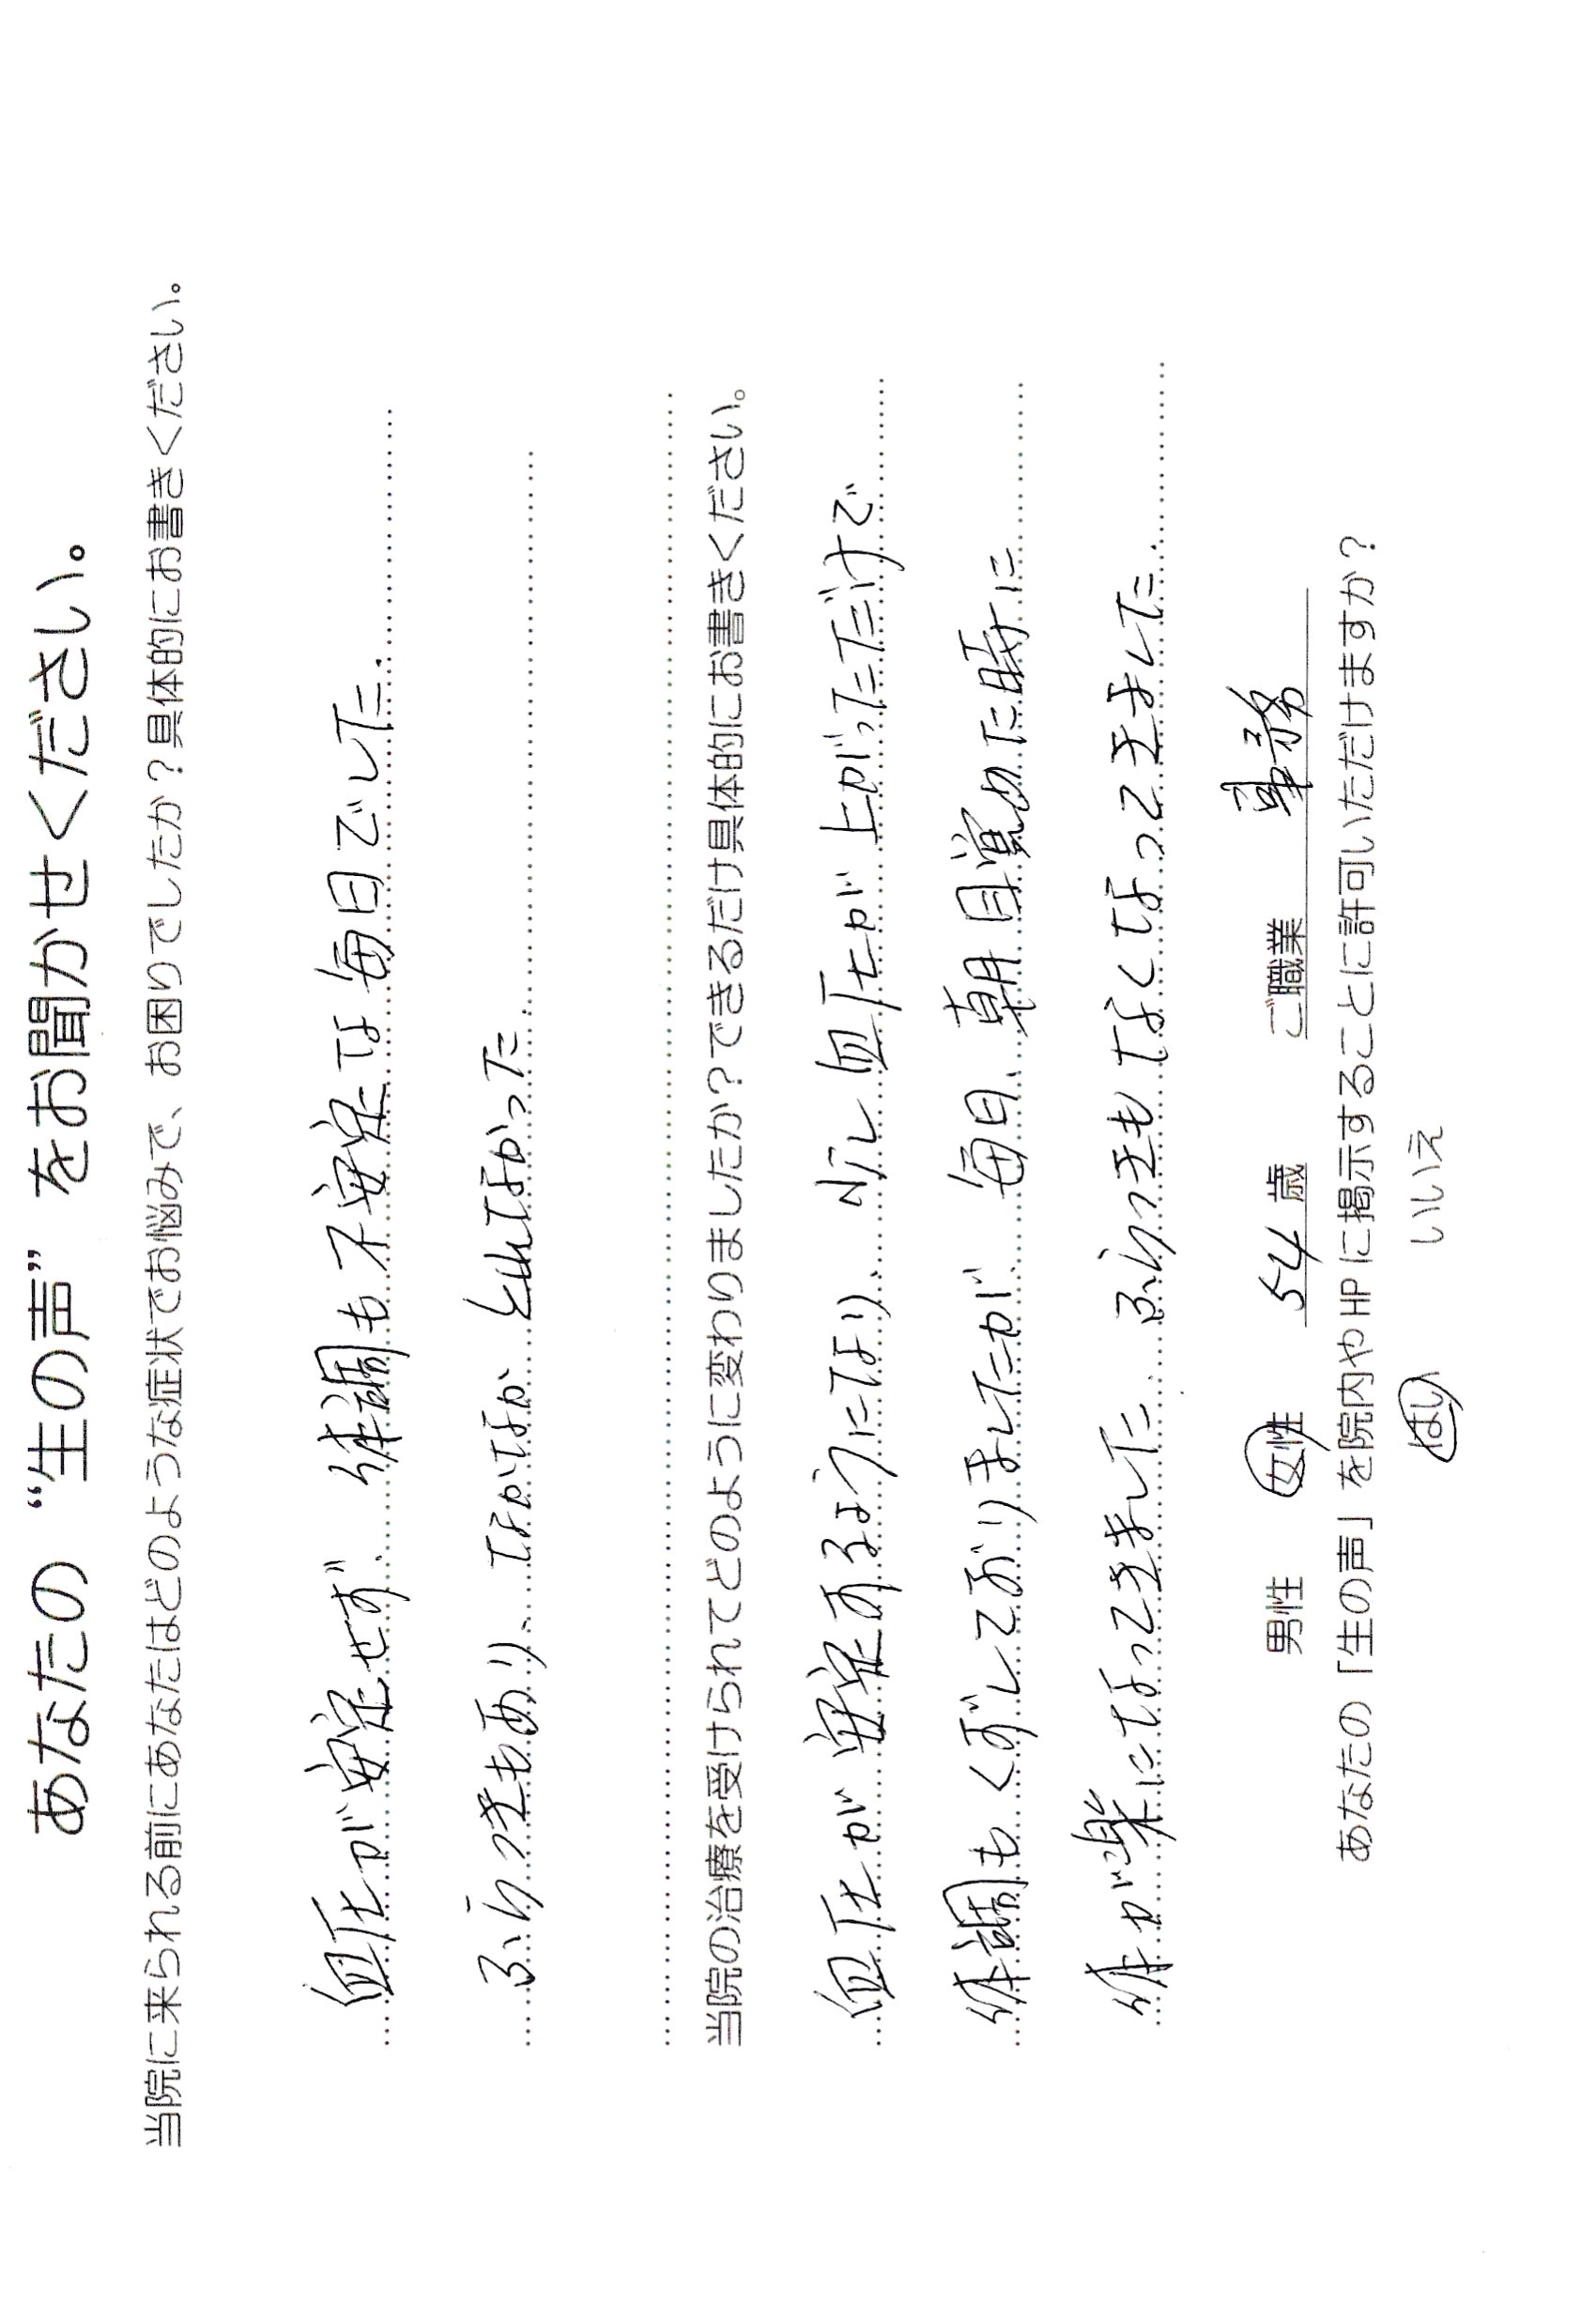 あなたの“生の声”をお聞かせください。
当院に来られる前にあなたはどのような症状でお悩みで、お困りでしたか？具体的にお書きください。
血圧が安定せず、体調も不安定な毎日でした。
ふらつきもあり、なかなか とれなかった
当院の治療を受けられてどのように変わりましたか？できるだけ具体的にお書きください。
血圧が安定するようになり、少し血圧が上がっただけで
体調もくずしておりましたが、毎日、朝目覚めた時に
体が楽になってきました、ふらつきもなくなってきました.
男性 女性 54歳 ご職業 事務
あなたの「生の声」を院内やHPに掲示することに許可いただけますか？
はい いいえ